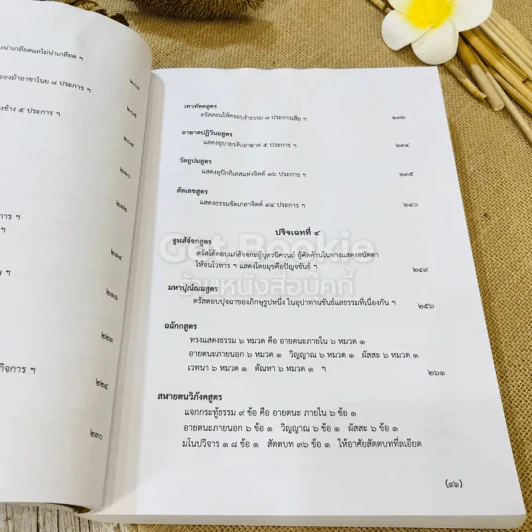 งน่าเกลียดแลไม่น่าเกลียด ฯ
ของม้าอาชาไนย ๘ ประการ ฯ
งช้าง ๕ ประการ ฯ
การ ฯ
ฯ
กิจการ ฯ
๒๒๔
๒๓๐
เทวทัตตสูตร
ตรัสสอนให้ครอบงำธรรม ๘ ประการเสีย ฯ ๒๓๒
อาฆาตปฏิวินยสูตร
แสดงอุบายระงับอาฆาต ๕ ประการ ฯ ๒๓๔
วัตถูปมสูตร
แสดงอุปักกิเลสแห่งจิตต์ ๑๖ ประการ ฯ ๒๓๕
สัลเลขสูตร
แสดงธรรมขัดเกลาจิตต์ ๔๔ ประการ ฯ ๒๔๐
ปริจเฉทที่ ๙
จูฬสัจจกสูตร
ตรัสโต้ตอบแก่สัจจกะผู้บุตรนิครนถ์ ผู้คัดค้านในทางแสดงอนัตตา
ให้จนโวหาร ฯ แสดงโดยมุขคือปัญจขันธ์ ฯ ๒๔๙
มหาปุณณมสูตร
ตรัสตอบปุจฉาของภิกษุรูปหนึ่ง ในอุปาทานขันธ์แลธรรมที่เนื่องกัน ฯ ๒๕๖
ฉฉักกสูตร
ทรงแสดงธรรม ๖ หมวด คือ อายตนะภายใน ๖ หมวด ๑
อายตนะภายนอก ๖ หมวด ๑ วิญญาณ ๖ หมวด ๑ ผัสสะ ๖ หมวด ๑
เวทนา ๖ หมวด ๑ ตัณหา ๖ หมวด ๑ ฯ ๒๖๑
สฬายตนวิภังคสูตร
แจกกระทู้ธรรม ๙ ข้อ คือ อายตนะ ภายใน ๖ ข้อ ๑
อายตนะภายนอก ๖ ข้อ ๑ วิญญาณ ๖ ข้อ ๑ ผัสสะ ๖ ข้อ ๑
มโนปวิจาร ๑๘ ข้อ ๑ สัตตบท ๓๖ ข้อ ๑ ให้อาศัยสัตตบทที่ละเอียด
Get Bookie
ร้านหนังสือบุ๊คกี้